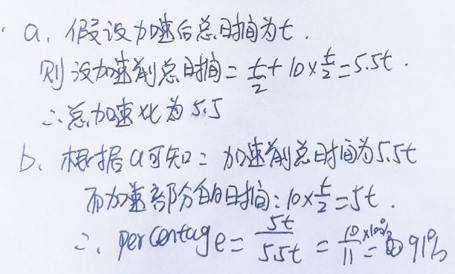 a. 假设加速后总时间为t.
则没加速前总时间 = t/2 + 10×t/2 = 5.5t.
∴总加速比为5.5
b. 根据a可知: 加速前总时间为5.5t
而加速部分的时间: 10×t/2 = 5t.
∴ percentage = 5t/5.5t = 10/11 ×100% = 91%